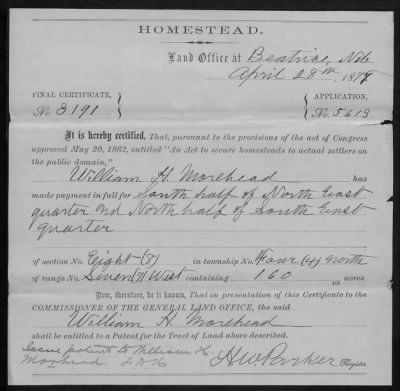 HOMESTEAD.
Land Office at Beatrice, Neb
April 28th, 187
FINAL CERTIFICATE, APPLICATION,
No. 3191 No. 5613
It is hereby certified, That, pursuant to the provisions of the act of Congress
approved May 20, 1862, entitled "An Act to secure homesteads to actual settlers on
the public domain,"
William H. Morehead has
made payment in full for South half of North East
quarter and North half of South East
quarter
of section No. Eight (8) in township No. Four (4) north
of range No. Seven (7) West containing 160 acres
Now, therefore, be it known, That on presentation of this Certificate to the
COMMISSIONER OF THE GENERAL LAND OFFICE, the said
William H. Morehead
shall be entitled to a Patent for the Tract of Land above described.
Issue patent to William H.
Morehead HW Parker Register.